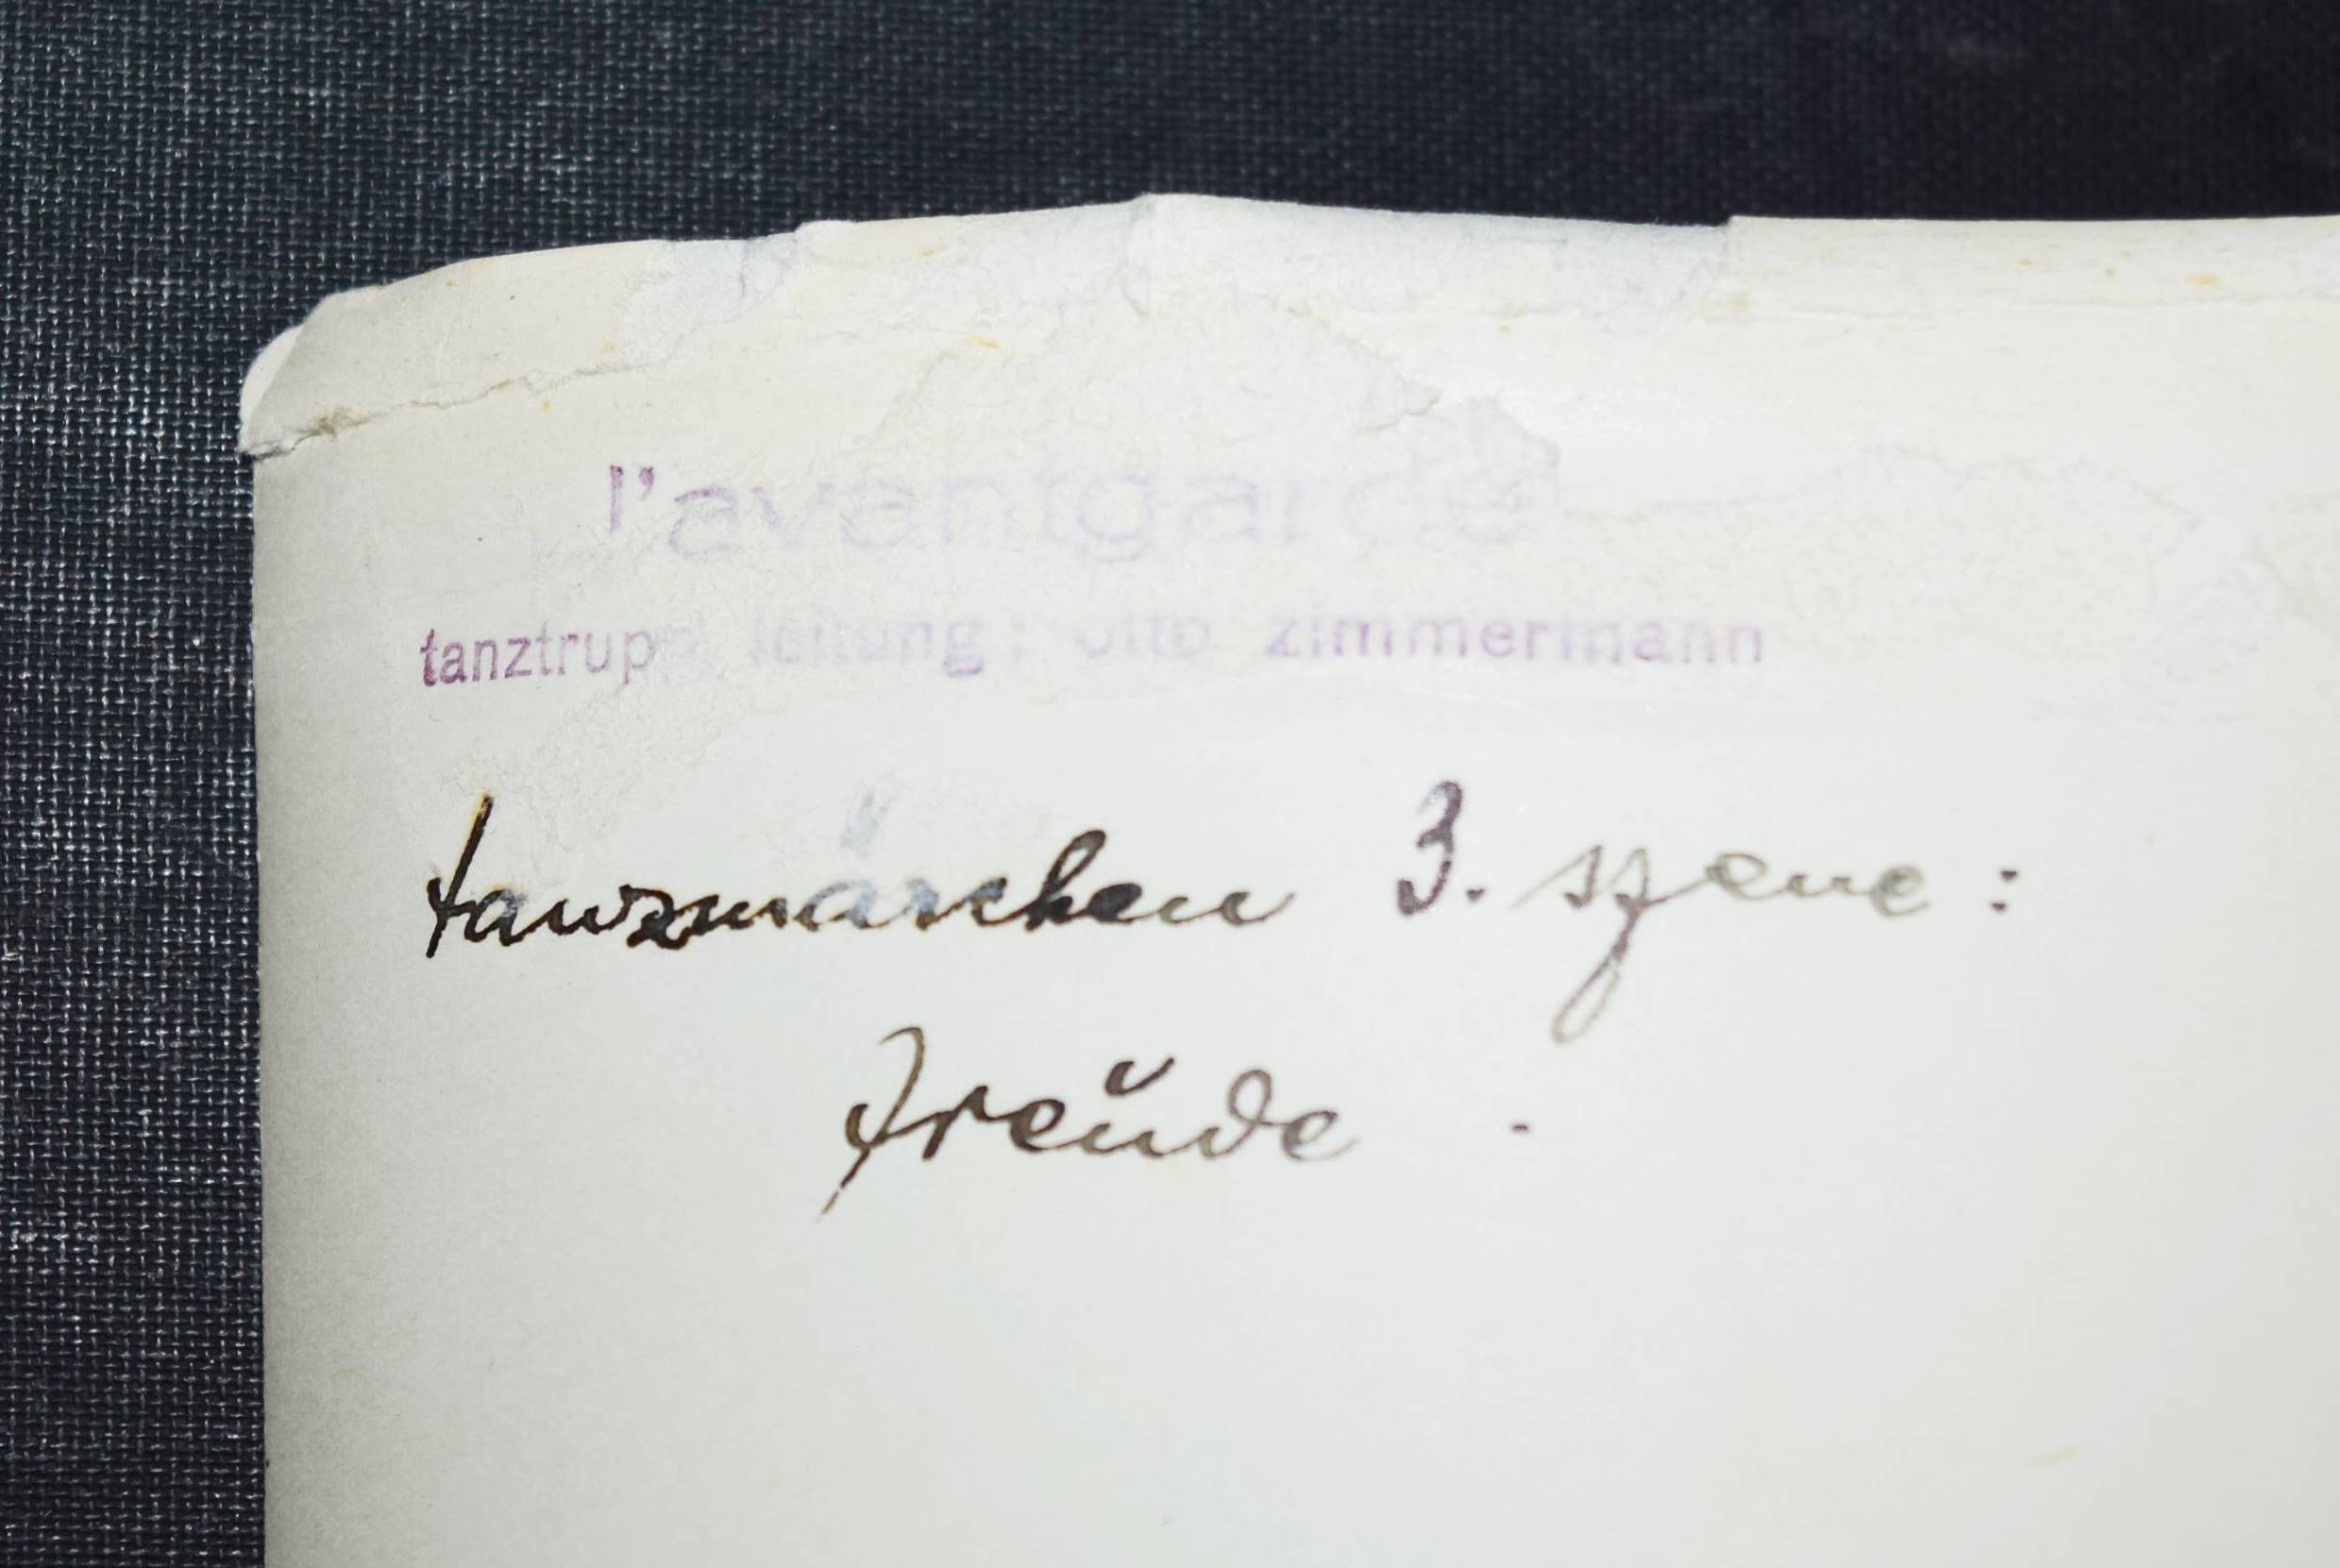 l'avantgarde
tanztrupp leitung: otto zimmermann
tanzmärchen 3. szene:
freude .